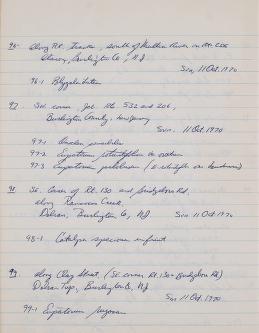 along R.R. Tracks, south of Mullica River on Rt. 206
Burlington Co., NJ
Sun, 11 Oct. 1970
97. SW corner, Jct. Rt. 532 and 206,
Burlington County, New Jersey
Sun. 11 Oct. 1970
97-1
97-2 Eupatorium rotundifolium
97-3 Eupatorium
98. SE. Corner of Rt. 130 and Bridgeboro Rd.
along Rancocas Creek,
Delran, Burlington Co, NJ Sun 11 Oct 1970
98-1 Catalpa speciosa in fruit
99. along Clay Street, (SE corner Rt. 130 & Bridgeboro Rd)
Delran Twp, Burlington Co, NJ
Sun 11 Oct 1970
99-1 Eupatorium rugosum